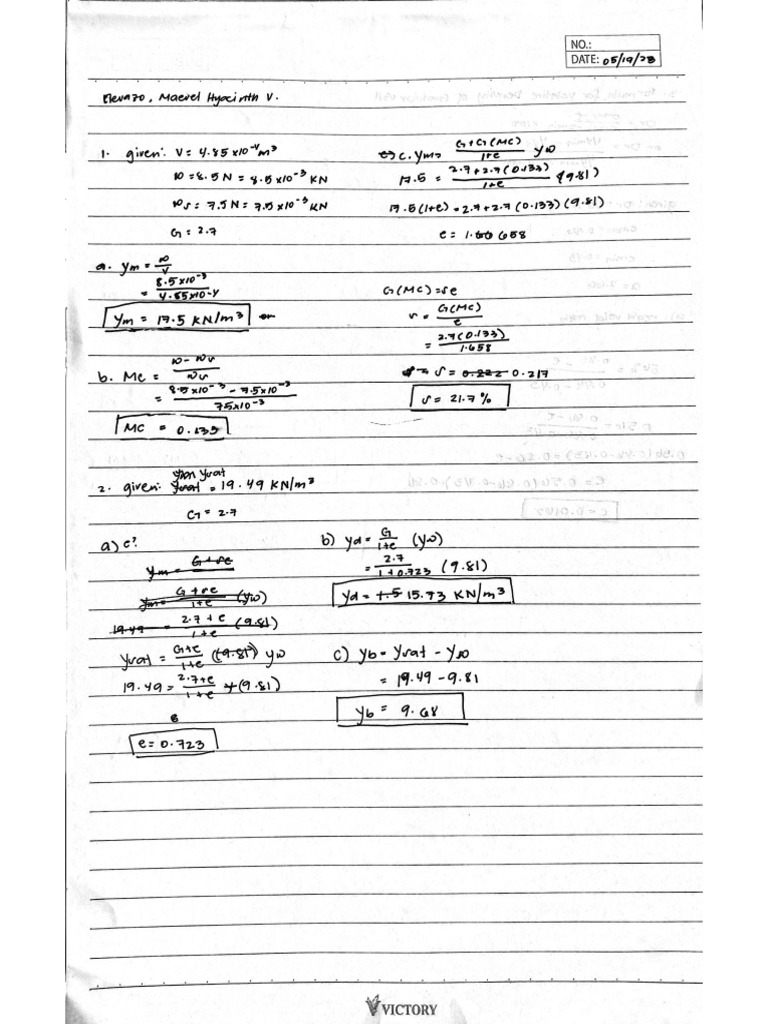 NO.:
DATE: 05/19/23
Elevazo, Maerel Hyacinth V.
1. given: V = 4.85x10⁻⁴m³
w = 8.5N = 8.5x10⁻³ KN
ws = 7.5N = 7.5x10⁻³ KN
G = 2.7
a. γm = w/V
= 8.5x10⁻³/4.85x10-4
γm = 17.5 KN/m³
b. Mc = w - ws/ws
= 8.5x10⁻³ - 7.5x10⁻³/75x10⁻³
MC = 0.133
c. γm = G+G(MC)/1+e γw
17.5 = 2.7+2.7(0.133)/1+e (9.81)
17.5(1+e) = 2.7+2.7(0.133)(9.81)
e = 1.658
G(MC) = se
s = G(MC)/e
= 2.7(0.133)/1.658
s = 0.222 0.217
s = 21.7%
2. given: γsat = 19.49 KN/m³
G = 2.7
a) e?
γm = G+se
γm = G+se/1+e (γw)
19.49 = 2.7+e/1+e (9.81)
γsat = G+e/1+e (9.81) γw
19.49 = 2.7+e/1+e (9.81)
e = 0.723
b) γd = G/1+e (γw)
= 2.7/1+0.723 (9.81)
γd = 1.5 15.73 KN/m³
c) γb = γsat - γw
= 19.49 - 9.81
γb = 9.68
VICTORY